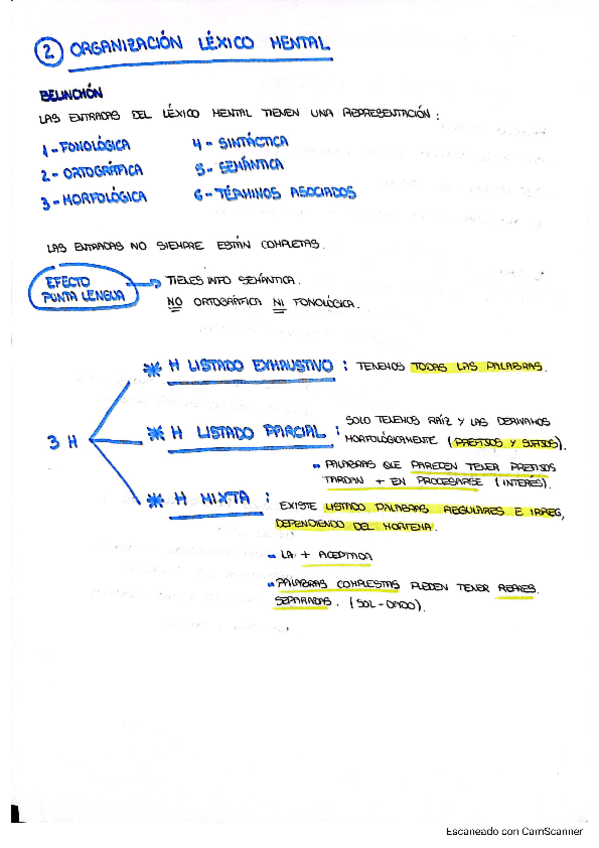 2 ORGANIZACIÓN LÉXICO MENTAL
BELINCHÓN
LAS ENTRADAS DEL LÉXICO MENTAL TIENEN UNA REPRESENTACIÓN:
1-FONOLÓGICA 4- SINTÁCTICA
2- ORTOGRÁFICA 5- SEMÁNTICA
3-MORFOLÓGICA 6-TÉRMINOS ASOCIADOS
LAS ENTRADAS NO SIEMPRE ESTÁN COMPLETAS.
EFECTO
PUNTA LENGUA
TIENES INFO SEMÁNTICA.
NO ORTOGRÁFICA NI FONOLÓGICA.
3 H
* H LISTADO EXHAUSTIVO : TENEMOS TODAS LAS PALABRAS.
* H LISTADO PARCIAL : SOLO TENEMOS RAÍZ Y LAS DERIVAMOS
MORFOLÓGICAMENTE (PREFIJOS Y SUFIJOS).
PALABRAS QUE PARECEN TENER PREFIJOS
TARDAN + EN PROCESARSE (INTERÉS).
* H MIXTA : EXISTE LISTADO PALABRAS REGULARES E IRREG,
DEPENDIENDO DEL MORFEMA.
- LA + ACEPTADA
PALABRAS COMPUESTAS PUEDEN TENER REPRES.
SEPARADAS. (SOL-DADO).
Escaneado con CamScanner